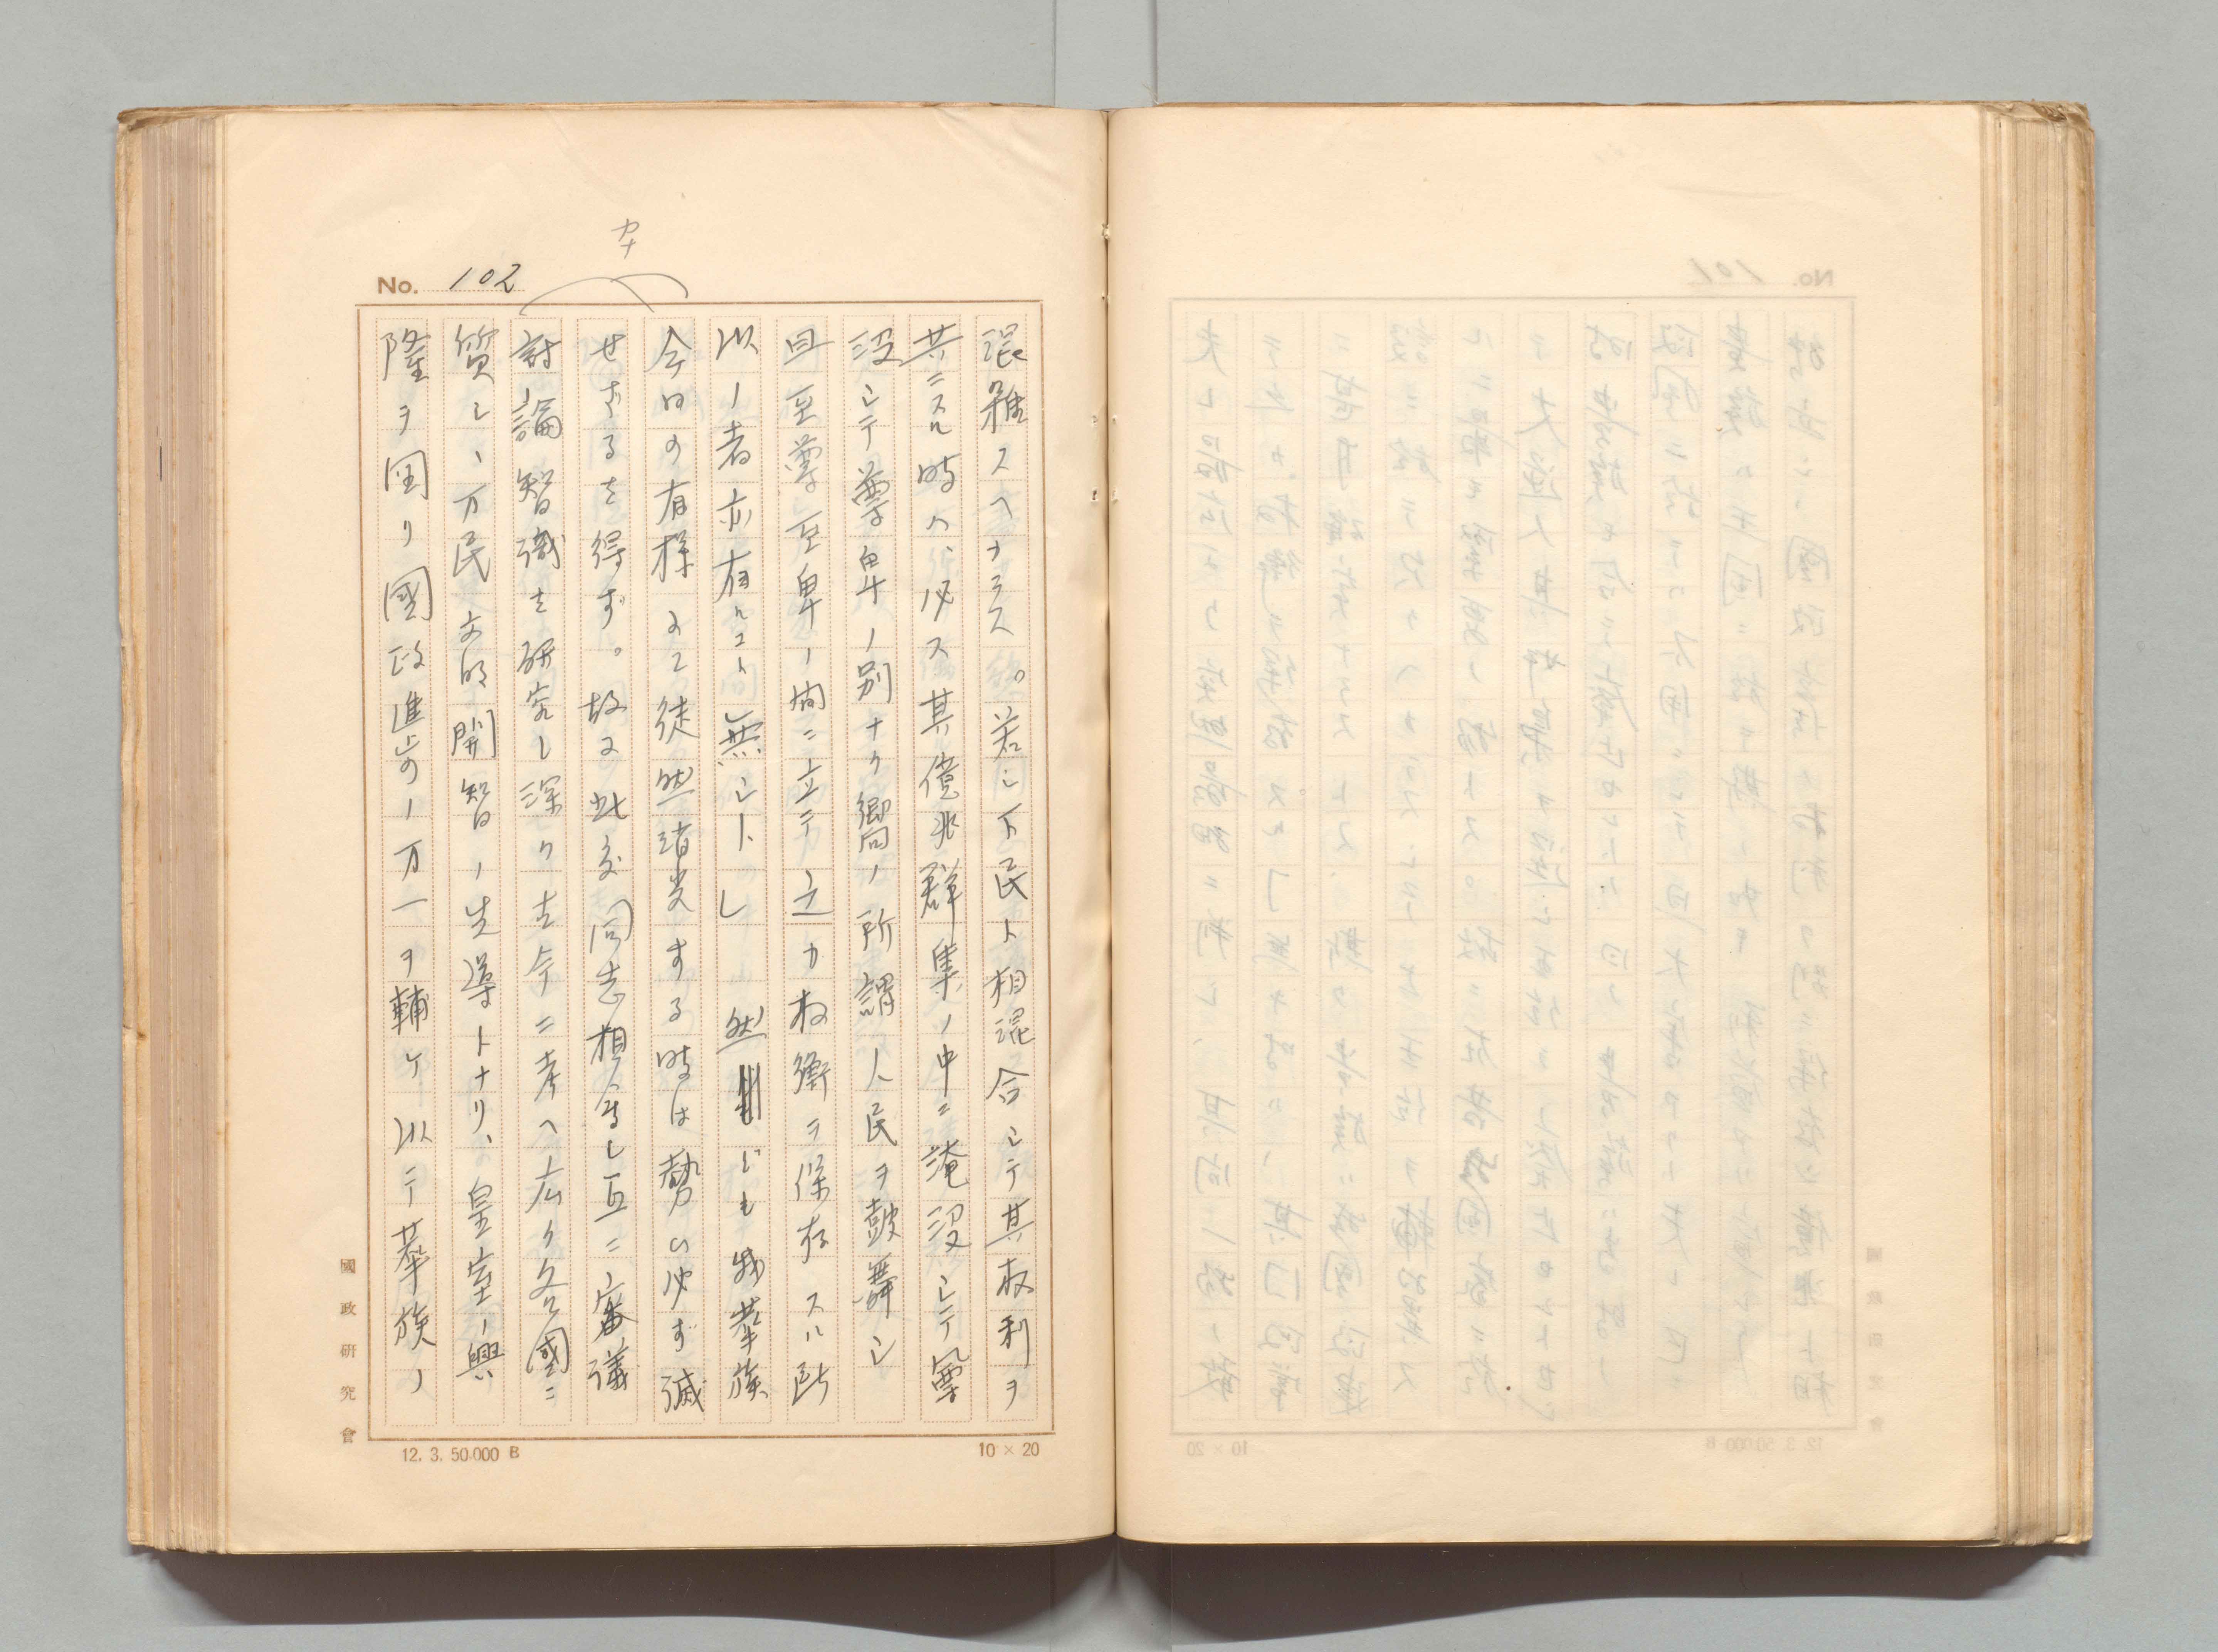 カナ
No. 102
混雑スヘナラス。若シ下民ト相混合シテ其权利ヲ
共ニスル時ハ、必ス其億兆群集ノ中ニ淹没シテ氣
没シテ尊卑ノ別ナク郷向ノ所謂人民ヲ鼓舞シ
且至尊至卑ノ間ニ立テ之カ权衡ヲ保存スル所
以ノ者亦有ルコト無シトし 然ども我華族
今日の有様みて徒然消光する時は勢ひ必ず滅
せざるを得ず。故に此度同志相会し互ニ審議
討論智識を研究し深く古今ニ考へ広く各國ニ
質し、万民文明開智ノ先導トナリ、皇室ノ興
隆ヲ图リ國政進歩ノ万一ヲ輔ケ以テ華族ノ
國政研究會
12. 3. 50.000 B
10 × 20